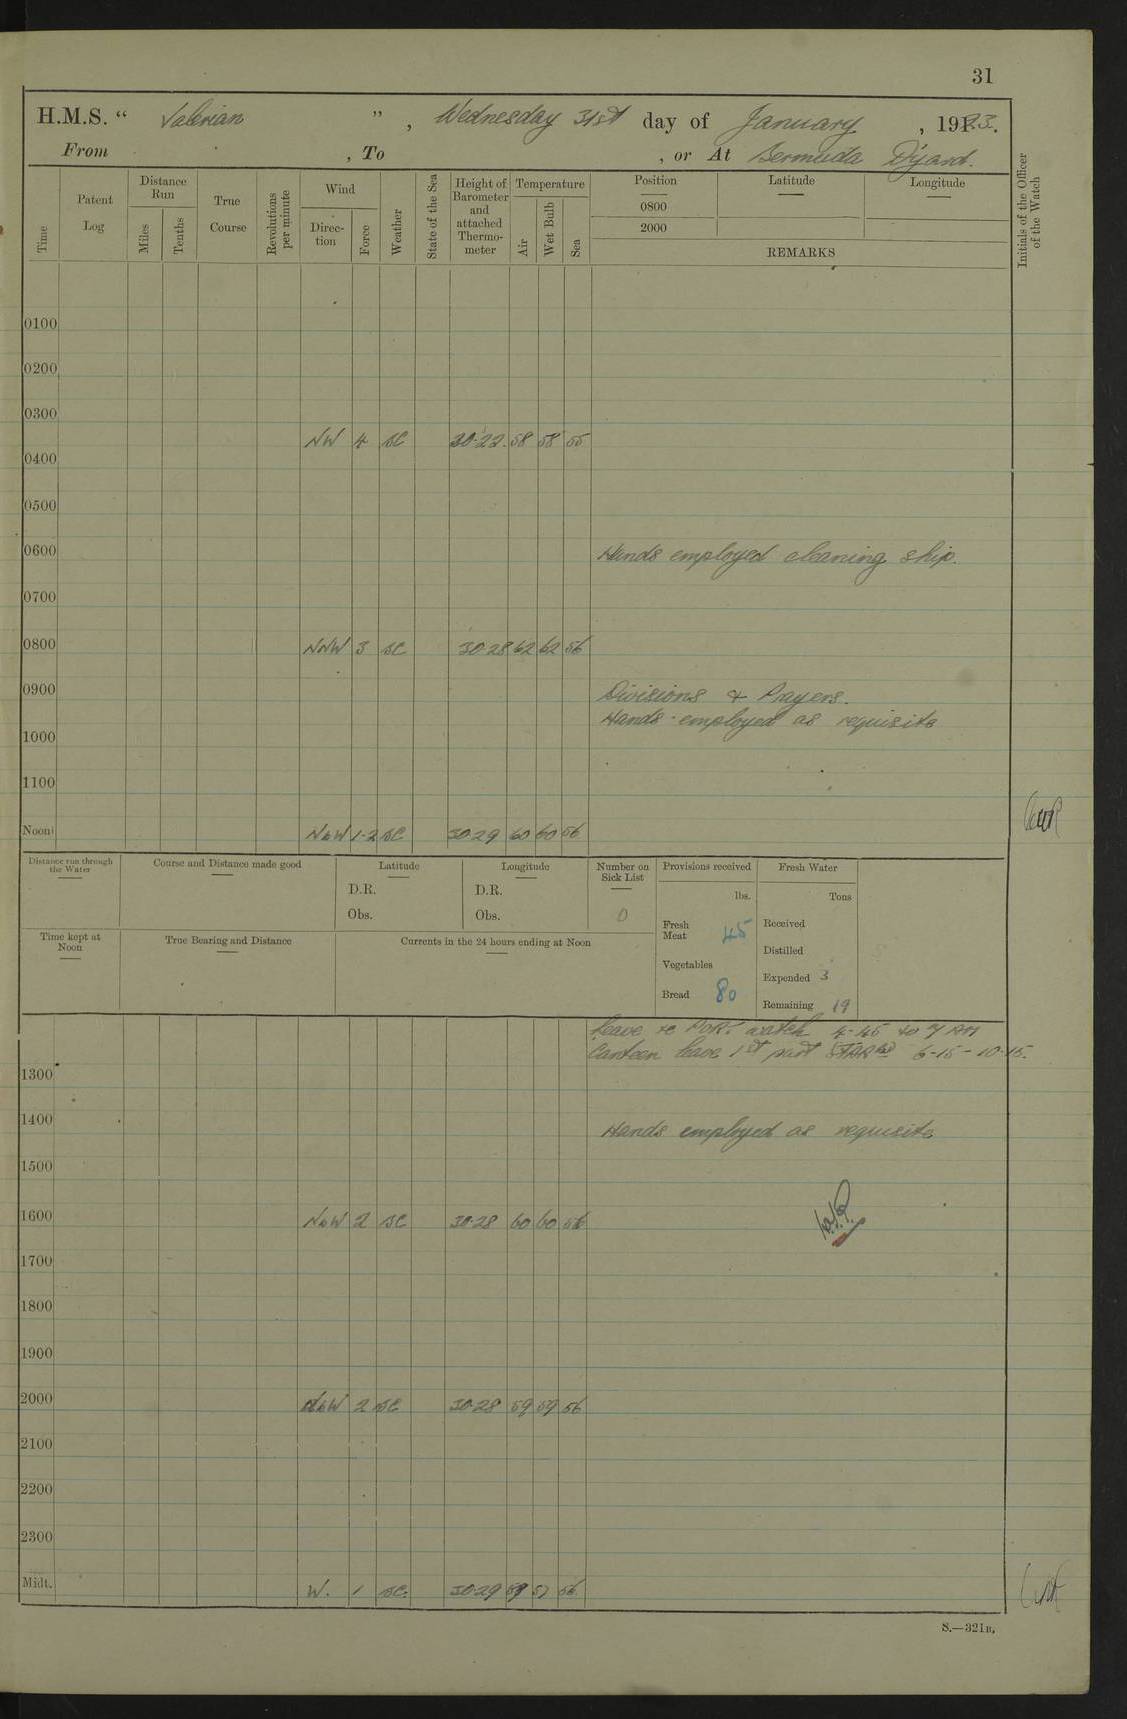 31
H.M.S. “ Valerian ” , Wednesday 31st day of January , 1923.
From , To , or At Bermuda D'yard.
Time
Patent Log
Distance Run
Miles
Tenths
True Course
Revolutions per minute
Wind
Direction
Force
Weather
State of the Sea
Height of Barometer and attached Thermometer
Temperature
Air
Wet Bulb
Sea
Position
0800
2000
Latitude
Longitude
REMARKS
Initials of the Officer of the Watch
0100
0200
0300
NW 4 BC 30·22 58 58 55
0400
0500
0600 Hands employed cleaning ship.
0700
0800 NNW 3 BC 30·28 62 62 56
0900 Divisions & Prayers.
Hands employed as requisite
1000
1100
Noon NbW 1-2 BC 30·29 60 60 56
Distance run through the Water
Course and Distance made good
Latitude
D.R.
Obs.
Longitude
D.R.
Obs.
Number on Sick List
0
Provisions received
lbs.
Fresh Meat 45
Vegetables
Bread 80
Fresh Water
Tons
Received
Distilled
Expended 3
Remaining 19
Time kept at Noon
True Bearing and Distance
Currents in the 24 hours ending at Noon
Leave to PORT watch 4-45 to 7 AM
Canteen leave 1st part STARBd 6-15 - 10-15.
1300
1400 Hands employed as requisite
1500
1600 NbW 2 BC 30·28 60 60 56
1700
1800
1900
2000 NbW 2 BC 30·28 59 59 56
2100
2200
2300
Midt. W. 1 BC. 30·29 57 56
S.—321B.